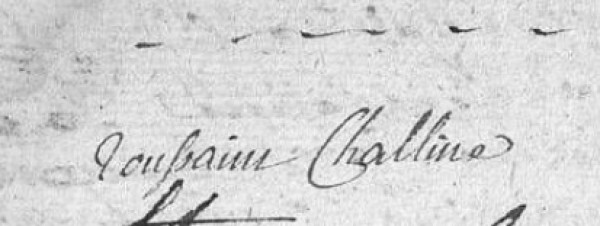 Toussaint Challine